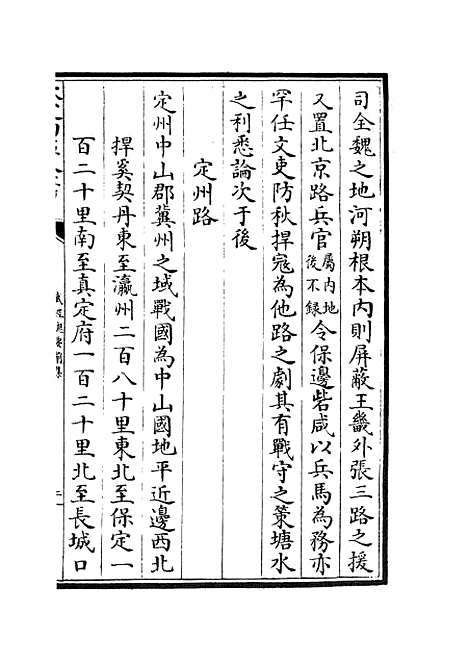 司全魏之地河朔根本內則屏蔽王畿外張三路之援
又置北京路兵官屬内地後不錄今保邊砦咸以兵馬為務亦
罕任文吏防秋捍寇為他路之劇其有戰守之策塘水
之利悉論次于後
定州路
定州中山郡冀州之域戰國為中山國地平近邊西北
捍奚契丹東至瀛州二百八十里東北至保定一
百二十里南至真定府一百二十里北至長城口
武經總要前集